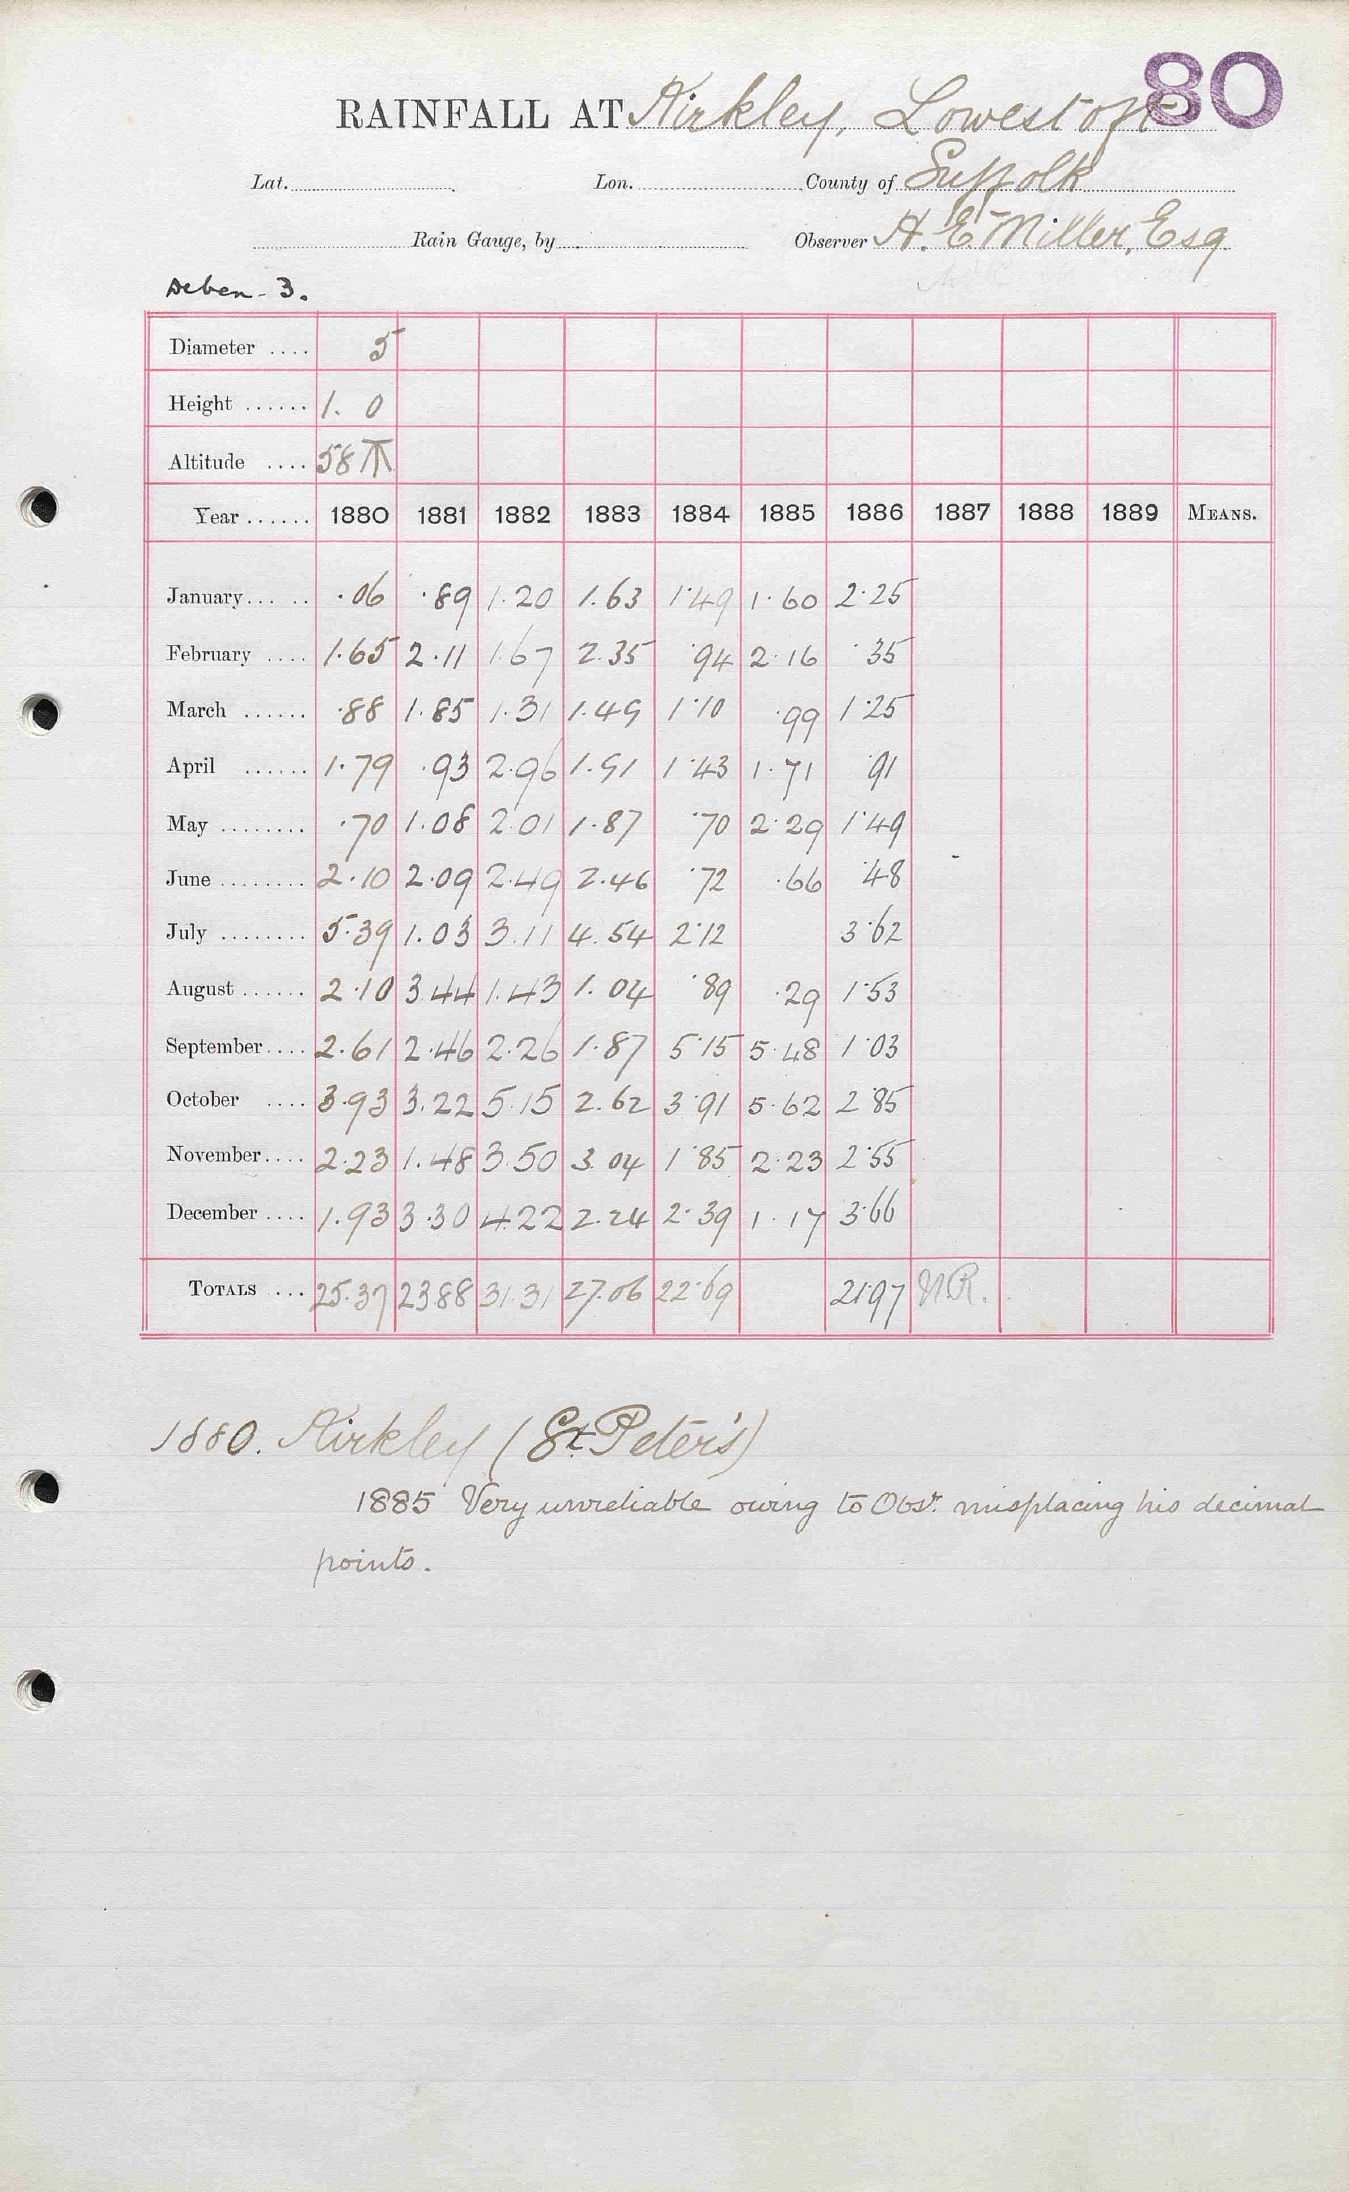 80
RAINFALL AT Kirkley, Lowestoft
Lat. Lon. County of Suffolk
Rain Gauge, by Observer H. E. Miller, Esq
Deben - 3.
Diameter .... 5
Height ...... 1. 0
Altitude .... 58
Year ...... 1880 1881 1882 1883 1884 1885 1886 1887 1888 1889 MEANS.
January ..... ·06 ·89 1.20 1.63 1·49 1·60 2·25
February .... 1·65 2·11 1.67 2.35 ·94 2·16 ·35
March ...... ·88 1·85 1.31 1.49 1·10 ·99 1·25
April ...... 1·79 ·93 2.96 1.91 1·43 1·71 ·91
May ........ ·70 1·08 2.01 1.87 ·70 2·29 1·49
June ........ 2·10 2·09 2.49 2.46 ·72 ·66 ·48
July ........ 5·39 1.03 3.11 4.54 2·12 3·62
August ...... 2·10 3.44 1.43 1.04 ·89 ·29 1·53
September .... 2.61 2·46 2.26 1.87 5·15 5·48 1·03
October .... 3·93 3.22 5.15 2.62 3·91 5·62 2·85
November .... 2·23 1.48 3.50 3.04 1·85 2·23 2·55
December .... 1.93 3·30 4.22 2.24 2·39 1·17 3·66
TOTALS ... 25.37 23.88 31.31 27.06 22·69 21·97 N.R.
1880. Kirkley (St Peter's)
1885 Very unreliable owing to Obsr. misplacing his decimal
points.